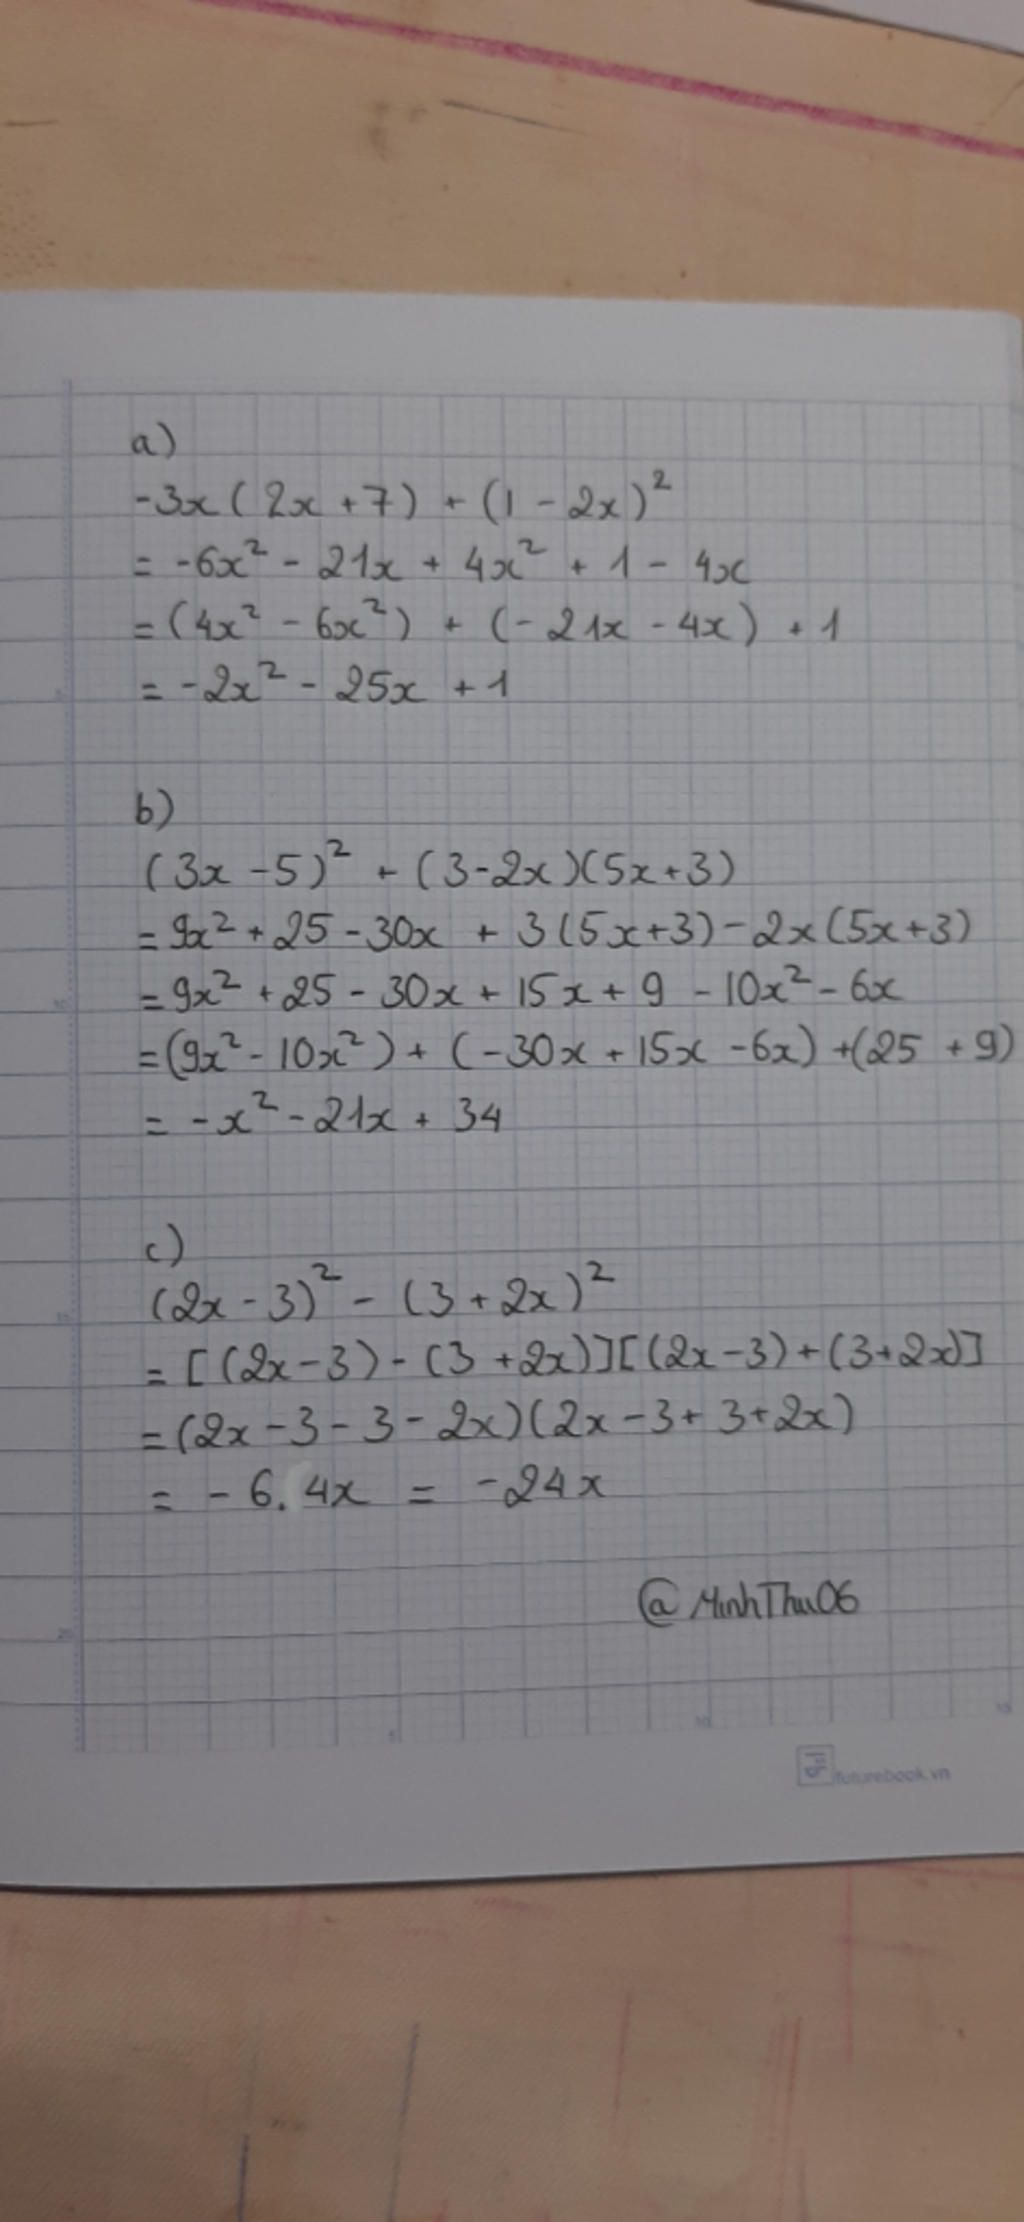 a)
-3x(2x+7) + (1-2x)²
= -6x² - 21x + 4x² + 1 - 4x
= (4x² - 6x²) + (-21x - 4x) + 1
= -2x² - 25x + 1
b)
(3x-5)² + (3-2x)(5x+3)
= 9x² + 25 - 30x + 3(5x+3) - 2x(5x+3)
= 9x² + 25 - 30x + 15x + 9 - 10x² - 6x
= (9x² - 10x²) + (-30x + 15x - 6x) + (25 + 9)
= -x² - 21x + 34
c)
(2x-3)² - (3+2x)²
= [(2x-3) - (3+2x)][(2x-3) + (3+2x)]
= (2x-3-3-2x)(2x-3+3+2x)
= -6.4x = -24x
@MinhThu06
futurebook.vn